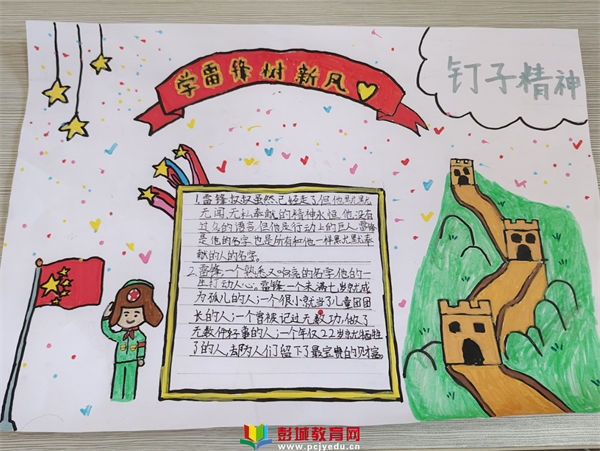 学雷锋树新风
钉子精神
1.雷锋叔叔虽然已经走了,但他默默
无闻、无私奉献的精神永恒。他没有
过多的语言,但他是行动上的巨人。雷锋
是他的名字,也是所有和他一样默默奉
献的人的名字。
2.雷锋一个熟悉又响亮的名字,他的一
生打动人心。雷锋一个未满七岁就成
为孤儿的人;一个很小就当了儿童团团
长的人;一个曾被记过无数功,做了
无数件好事的人;一个年仅22岁就牺牲
了的人,去给人们留下了最宝贵的财富
彭城教育网
www.pcjyedu.cn